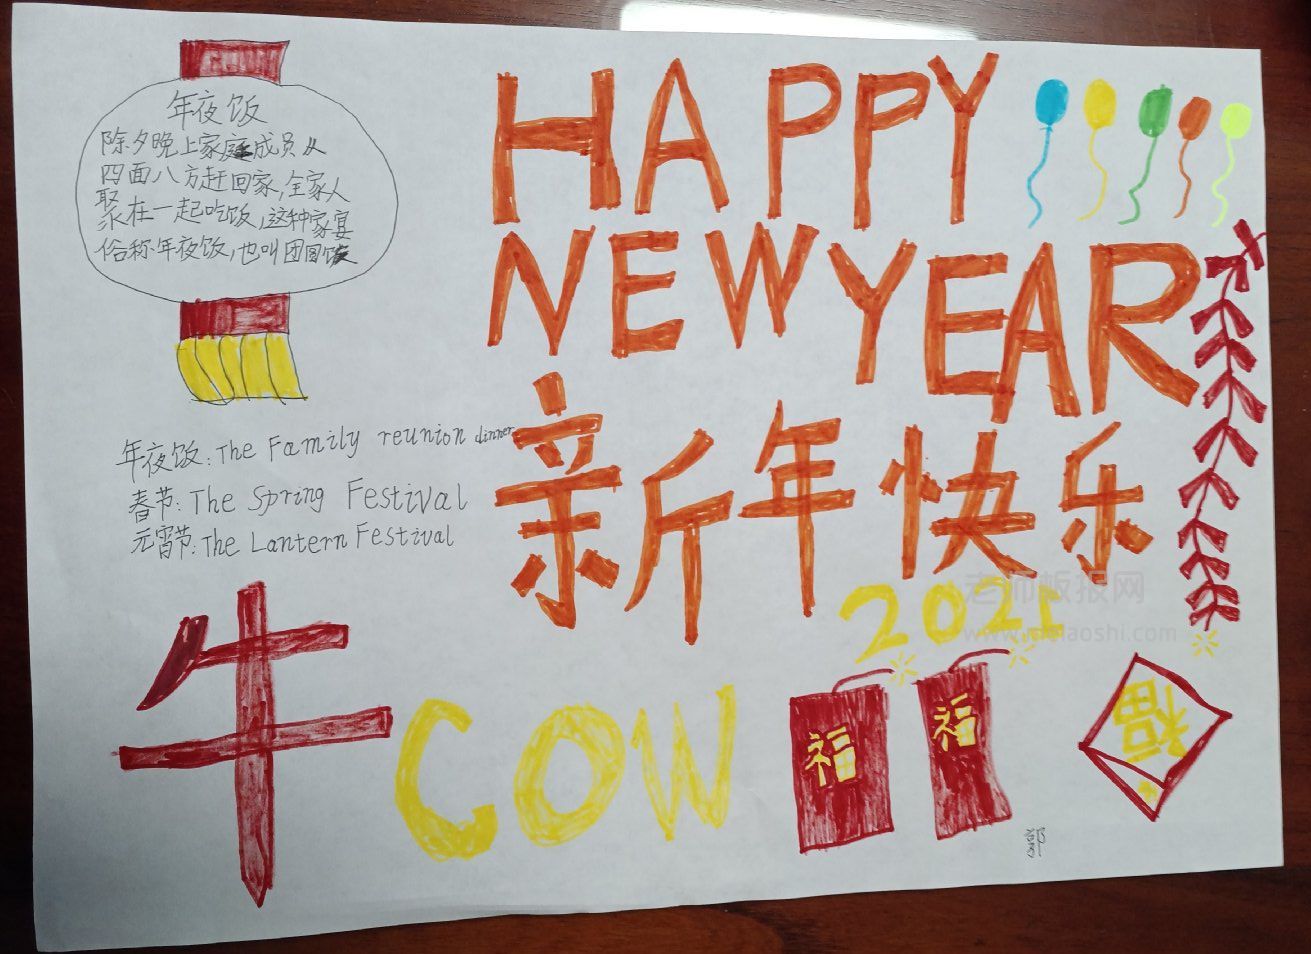 年夜饭
除夕晚上家庭成员从
四面八方赶回家,全家人
聚在一起吃饭,这种家宴
俗称年夜饭,也叫团圆饭
HAPPY
NEW YEAR
新年快乐
2021
年夜饭:The Family reunion dinner
春节:The Spring Festival
元宵节:The Lantern Festival
牛 COW
福
福
福
老师板报网